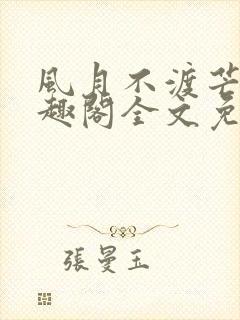 風月不渡芒
趣閣全文免
張曼玉